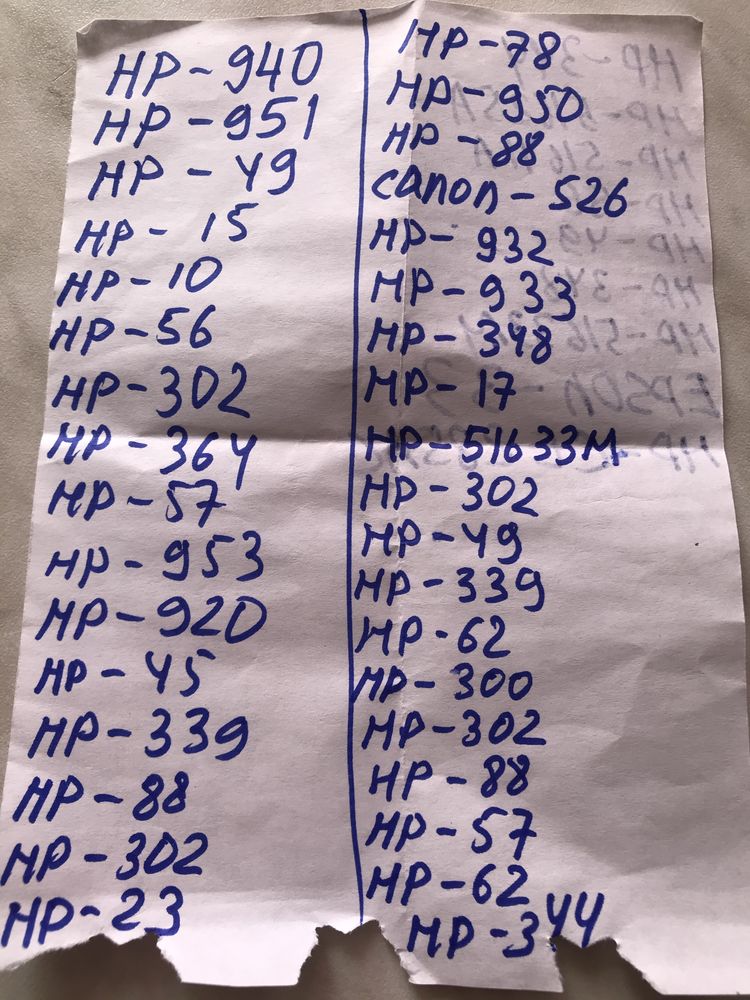 HP-940
HP-951
HP-49
HP-15
HP-10
HP-56
HP-302
HP-364
HP-57
HP-953
HP-920
HP-45
HP-339
HP-88
HP-302
HP-23
HP-78
HP-950
HP-88
canon-526
HP-932
HP-933
HP-348
HP-17
HP-51633M
HP-302
HP-49
HP-339
HP-62
HP-300
HP-302
HP-88
HP-57
HP-62
HP-344